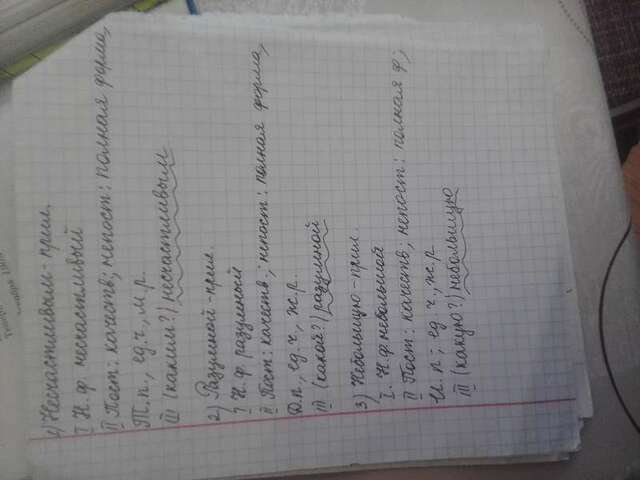 1) Несчастливым - прил.
I Н.ф. несчастливый
II Пост: качеств; непост: полная форма,
Т.п., ед.ч., м.р.
III (каким?) несчастливым
2) Разумной - прил.
I Н.ф. разумный
II Пост: качеств.; непост: полная форма,
Д.п., ед.ч., ж.р.
III (какой?) разумной
3) Небольшую - прил.
I. Н.ф. небольшой
II Пост: качеств; непост: полная ф;
И.п-, ед.ч., ж.р.
III (какую?) небольшую